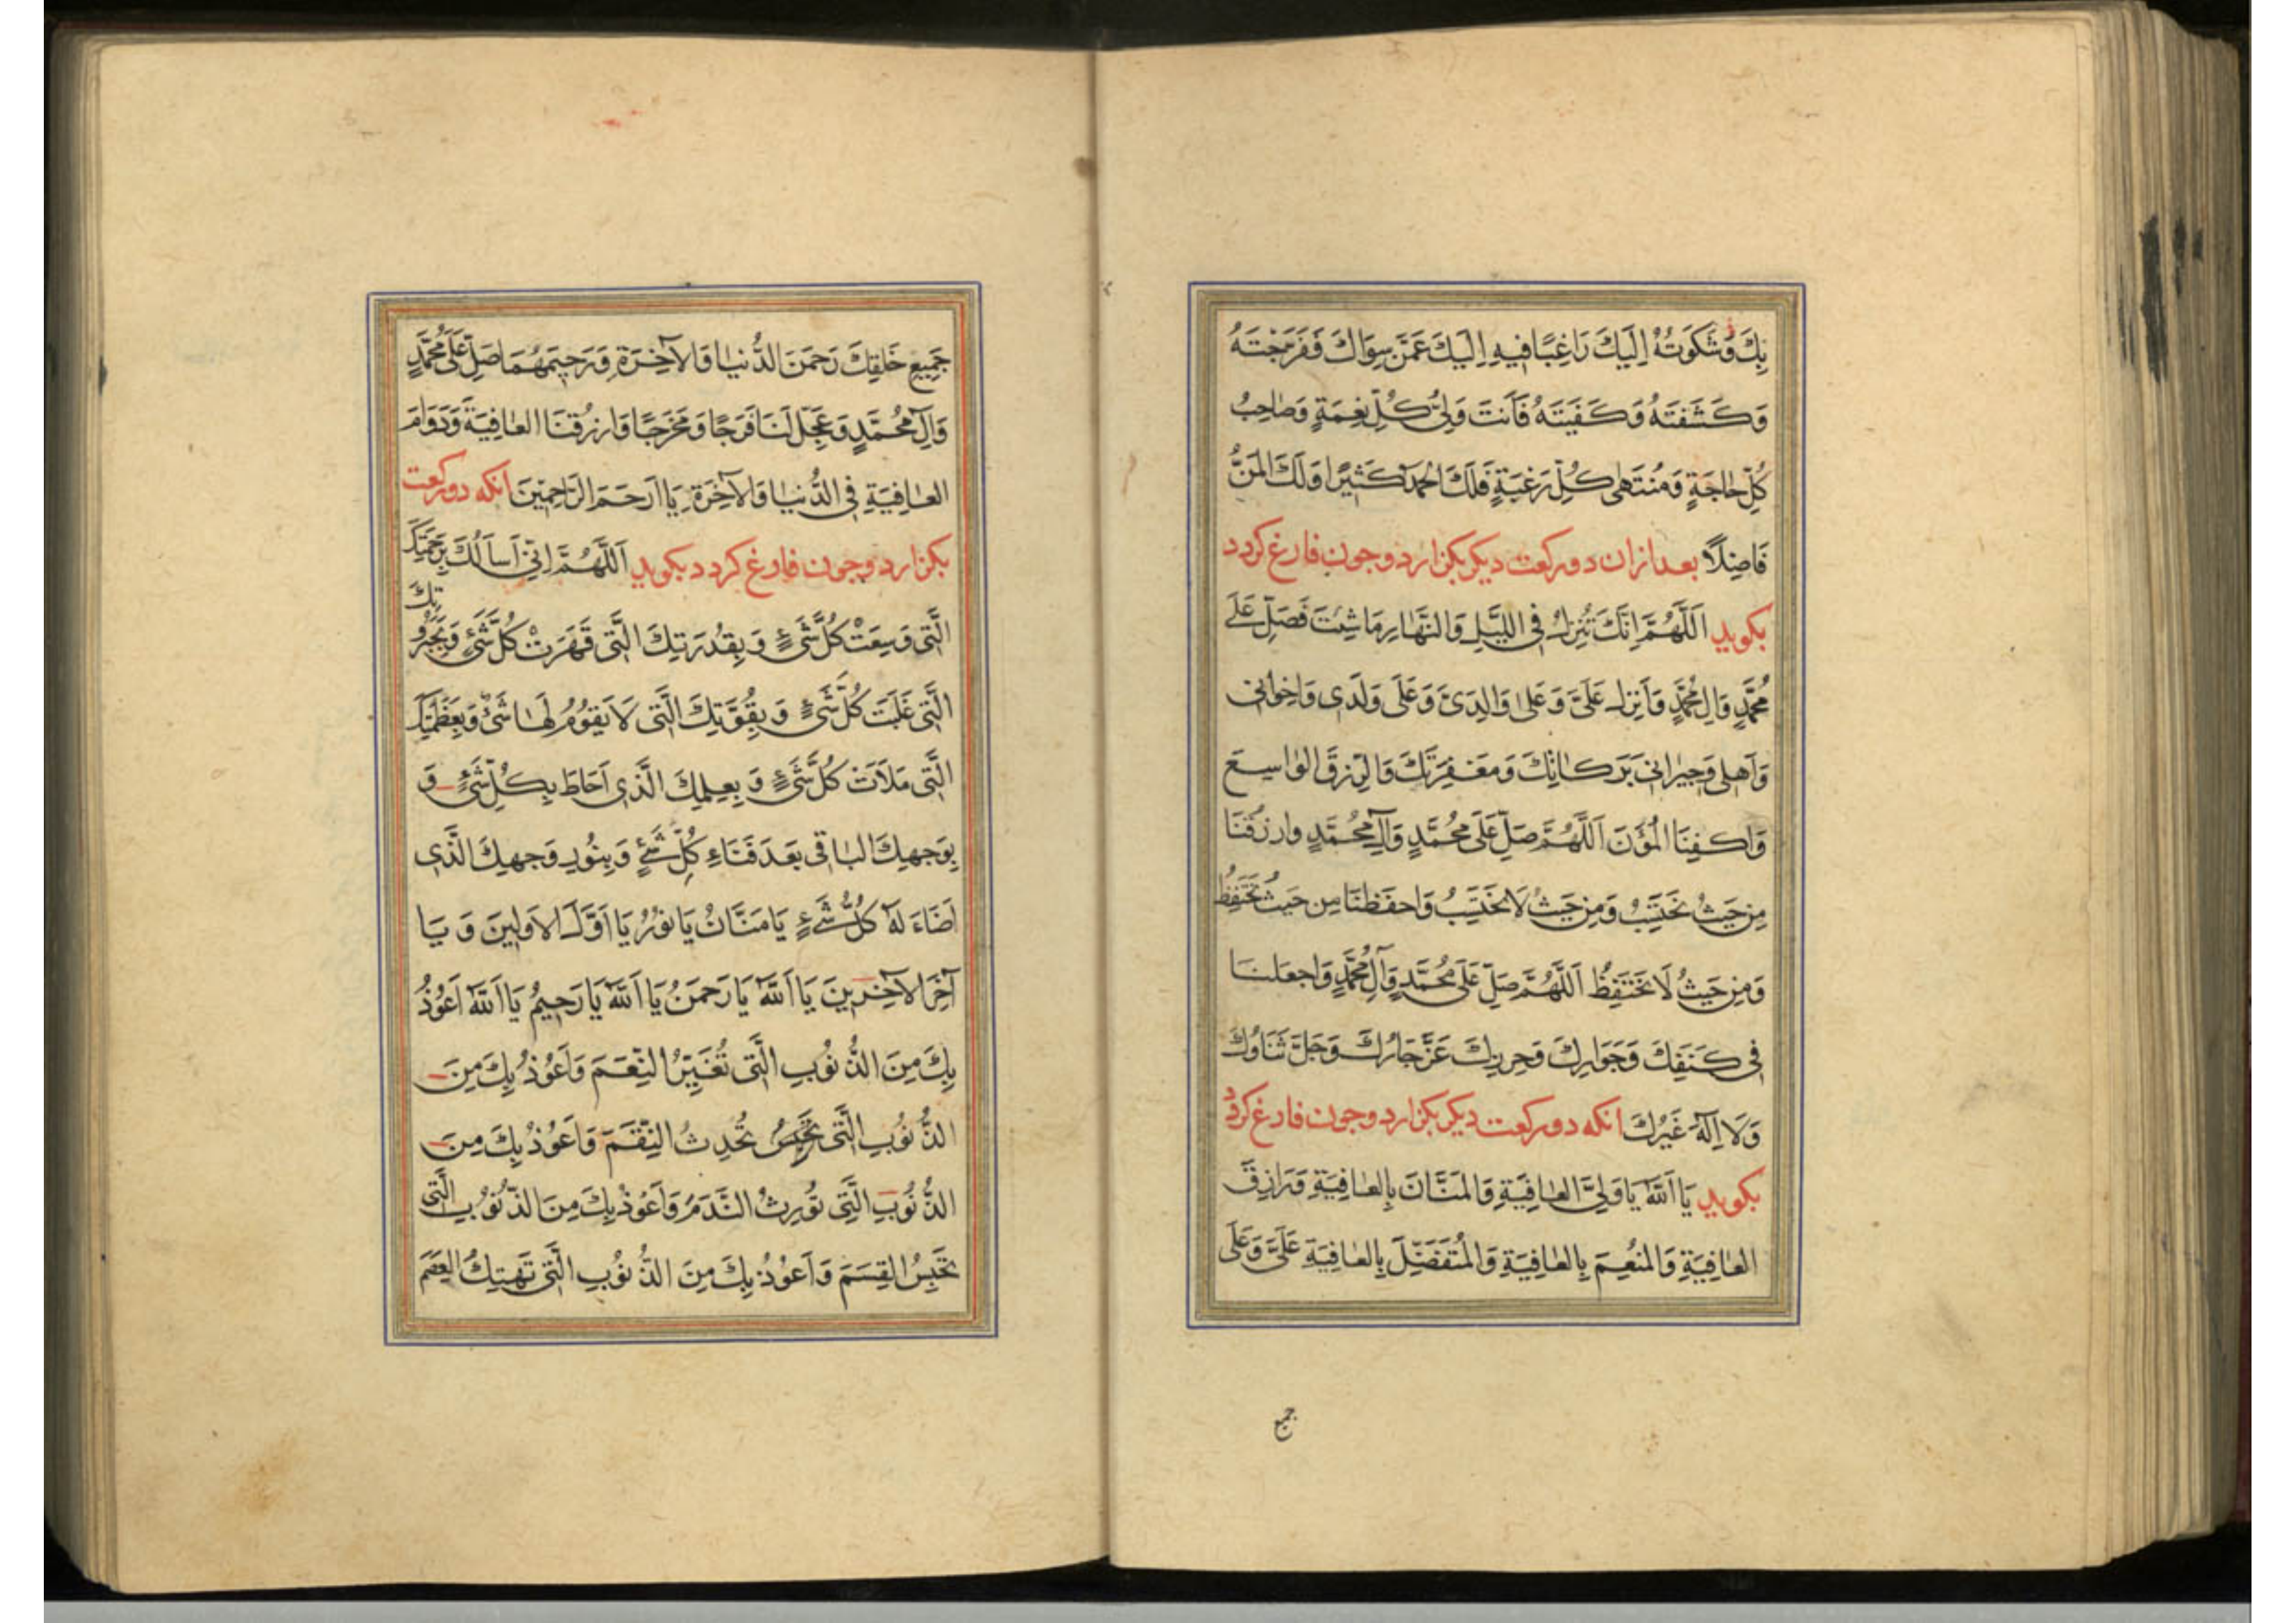 بِكَ وَشَكَوْتُهُ اِلَيْكَ رَاغِبًا فيهِ اِلَيْكَ عَمَّنْ سِوَاكَ فَفَرَّجْتَهُ
وَكَشَفْتَهُ وَكَفَيْتَهُ فَاَنْتَ وَلِيُّ كُلِّ نِعْمَةٍ وَصَاحِبُ
كُلِّ حَاجَةٍ وَمُنْتَهى كُلِّ رَغْبَةٍ فَلَكَ الحَمْدُ كَثيرًا وَلَكَ المَنُّ
فَاضِلًا بعد ازان دو ركعت ديكر بكزارد و جون فارغ كردد
بكويد اَللّهُمَّ اِنَّكَ تُنْزِلُ فِي اللَّيْلِ وَالنَّهَارِ مَا شِئْتَ فَصَلِّ عَلَى
مُحَمَّدٍ وَالِ مُحَمَّدٍ وَاَنْزِلْ عَلَيَّ وَعَلى وَالِدَيَّ وَعَلَى وَلَدي وَاِخْواني
وَاَهْلي وَجيراني بَرَكَاتِكَ وَمَغْفِرَتَكَ وَالرِّزْقَ الوَاسِعَ
وَاكْفِنَا المُؤَنَ اَللّهُمَّ صَلِّ عَلَى مُحَمَّدٍ وَآلِ مُحَمَّدٍ وارْزُقْنَا
مِنْ حَيْثُ نَحْتَسِبُ وَمِنْ حَيْثُ لَا نَحْتَسِبُ وَاحْفَظْنَا مِنْ حَيْثُ نَحْتَفِظُ
وَمِنْ حَيْثُ لَا نَحْتَفِظُ اَللّهُمَّ صَلِّ عَلَى مُحَمَّدٍ وَآلِ مُحَمَّدٍ وَاجْعَلْنَا
في كَنَفِكَ وَجَوَارِكَ وَحِرْزِكَ عَزَّ جَارُكَ وَجَلَّ ثَنَاؤُكَ
وَلَا اِلهَ غَيْرُكَ انكه دو ركعت ديكر بكزارد و جون فارغ كردد
بكويد يَا اَللهُ يَا وَلِيَّ العَافِيَةِ وَالمَنَّانَ بِالعَافِيَةِ وَرَازِقَ
العَافِيَةِ وَالمُنْعِمَ بِالعَافِيَةِ وَالمُتَفَضِّلَ بِالعَافِيَةِ عَلَيَّ وَعَلَى
جميع
جَميعِ خَلْقِكَ رَحْمَنَ الدُّنْيَا وَالآخِرَةِ وَرَحيمَهُمَا صَلِّ عَلَى مُحَمَّدٍ
وَآلِ مُحَمَّدٍ وَعَجِّلْ لَنَا فَرَجًا وَمَخْرَجًا وَارْزُقْنَا العَافِيَةَ وَدَوَامَ
العَافِيَةِ فِي الدُّنْيَا وَالآخِرَةِ يَا اَرْحَمَ الرَّاحِمينَ انكه دو ركعت
بكزارد و جون فارغ كردد بكويد اَللّهُمَّ اِنّي اَسْاَلُكَ بِرَحْمَتِكَ
الَّتي وَسِعَتْ كُلَّ شَيْءٍ وَبِقُدْرَتِكَ الَّتي قَهَرَتْ كُلَّ شَيْءٍ وَبِجَبَرُوتِكَ
الَّتي غَلَبَتْ كُلَّ شَيْءٍ وَبِقُوَّتِكَ الَّتي لَا يَقُومُ لَهَا شَيْءٌ وَبِعَظَمَتِكَ
الَّتي مَلَاَتْ كُلَّ شَيْءٍ وَبِعِلْمِكَ الَّذي اَحَاطَ بِكُلِّ شَيْءٍ وَ
بِوَجْهِكَ البَاقي بَعْدَ فَنَاءِ كُلِّ شَيْءٍ وَبِنُورِ وَجْهِكَ الَّذي
اَضَاءَ لَهُ كُلُّ شَيْءٍ يَا مَنَّانُ يَا نُورُ يَا اَوَّلَ الاَوَّلينَ وَيَا
آخِرَ الآخِرينَ يَا اَللهُ يَا رَحْمَنُ يَا اَللهُ يَا رَحيمُ يَا اَللهُ اَعُوذُ
بِكَ مِنَ الذُّنُوبِ الَّتي تُغَيِّرُ النِّعَمَ وَاَعُوذُ بِكَ مِنَ
الذُّنُوبِ الَّتي تُحْدِثُ النِّقَمَ وَاَعُوذُ بِكَ مِنَ
الذُّنُوبِ الَّتي تُورِثُ النَّدَمَ وَاَعُوذُ بِكَ مِنَ الذُّنُوبِ الَّتي
تَحْبِسُ القِسَمَ وَاَعُوذُ بِكَ مِنَ الذُّنُوبِ الَّتي تَهْتِكُ العِصَمَ